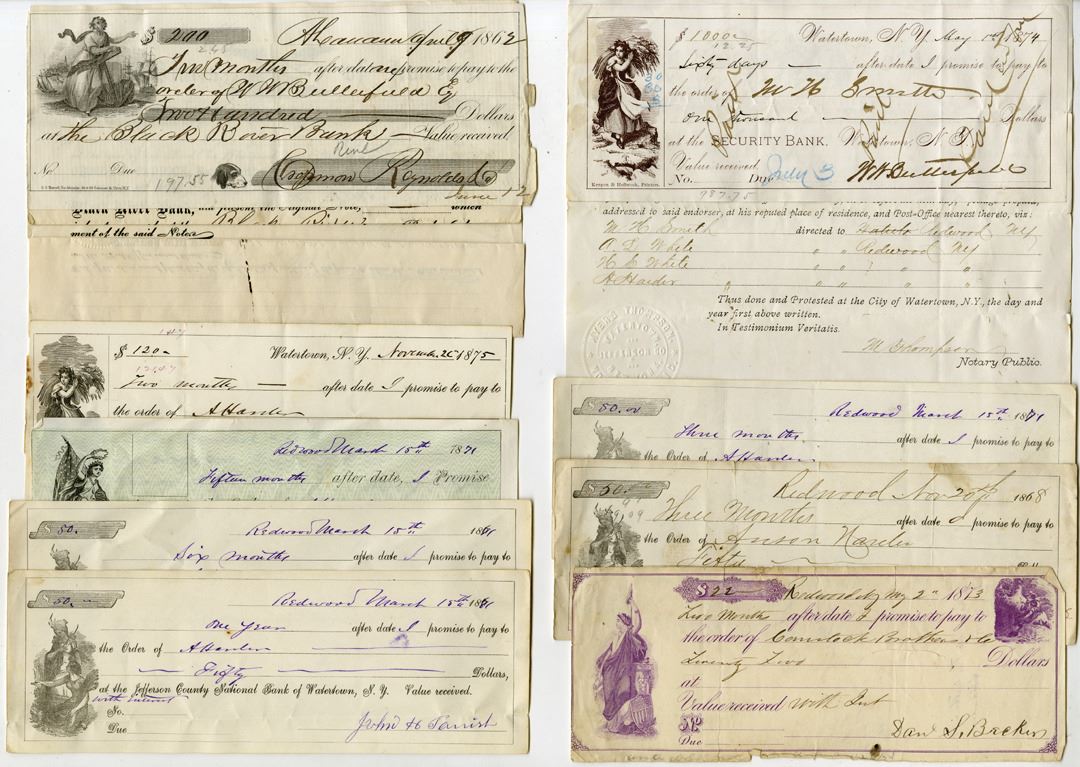 $ 200
1862
Two Months after date we promise to pay to the
order of W W Butterfield Esq
Two Hundred Dollars
at the Black River Bank Value received
No. Due
197.55
Reynolds
June 12
Black River Bank, and present the original Note, which
ment of the said Note
$ 120
Watertown, N. Y. November 26 1875
Two months after date I promise to pay to
the order of A Harder
Redwood March 15th 1871
Fifteen months after date, I Promise
$ 50.
Redwood March 15th 1871
Six months after date I promise to pay to
$ 50.
Redwood March 15th 1871
One Year after date I promise to pay to
the Order of A Harder
Fifty Dollars,
at the Jefferson County National Bank of Watertown, N. Y. Value received.
with interest
No.
Due
$ 1000
12.25
Watertown, N. Y. May 1874
Sixty days after date I promise to pay to
the order of M H Smith
One thousand Dollars
at the SECURITY BANK. Watertown, N. Y.
Value received
No. Due July 3
W W Butterfield
Kenyon & Holbrook, Printers.
787.75
addressed to said endorser, at his reputed place of residence, and Post-Office nearest thereto, viz:
M. H Smith directed to Redwood NY
A. L White " " Redwood NY
H E White " " " "
A Harder " " " "
Thus done and Protested at the City of Watertown, N.Y., the day and
year first above written.
In Testimonium Veritatis.
M Thompson
Notary Public.
$ 50.00
Redwood March 15th 1871
Three months after date I promise to pay to
the Order of A Harder
$ 50.
Redwood Nov 20th 1868
Three Months after date I promise to pay to
the Order of Anson Harder
Fifty
$ 22
Redwood NY May 2nd 1873
Two Month after date I promise to pay to
the order of Comstock Brothers & Co
Twenty Two Dollars
at
Value received with Int
No
Due